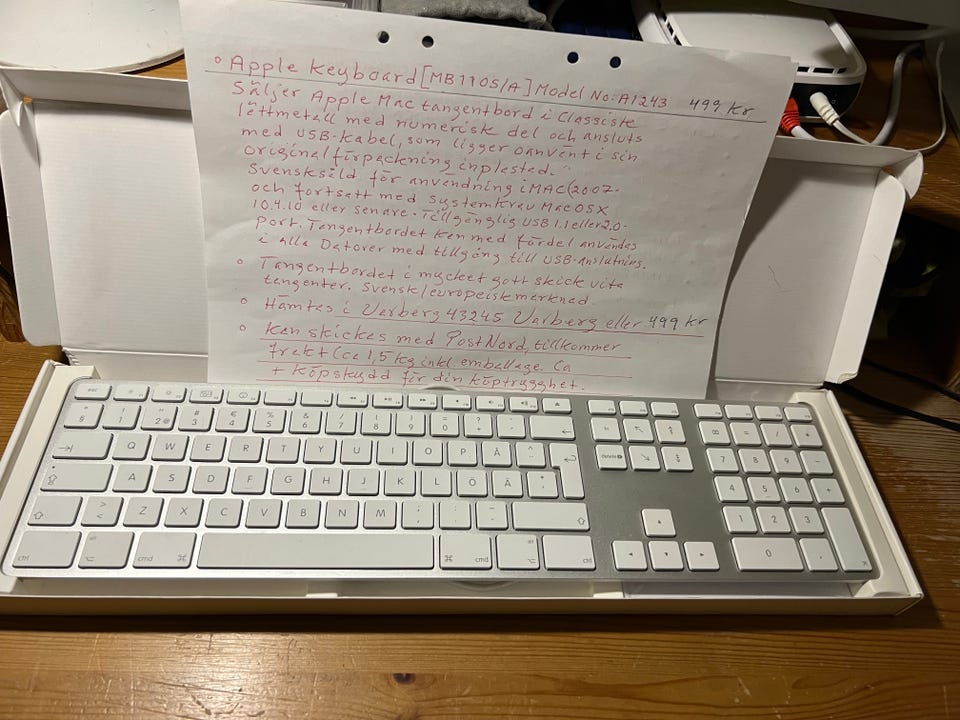 ° Apple Keyboard [MB110S/A] Model No: A1243 499 Kr
Säljer Apple Mac tangentbord i Classiste
lëttmetall med numerisk del och ansluts
med USB-kabel, som ligger oanvënt i sin
originalförpackning inplested.
Svensksåld för anvëndning iMAC(2007-
och fortsatt med systemkrav MacOSX
10.4.10 eller senare. Tillgënglig USB 1.1 eller 2.0-
port. Tangentbordet ken med fördel anvëndas
i alla Datorer med tillgång till USB-anslutning.
° Tangentbordet i mycket gott skick vita
tangenter. Svensk/europeisk merknad.
° Hämtes i Varberg 43245 Varberg eller 499 Kr
° Ken skickes med PostNord, tillkommer
frakt (ca 1,5 kg inkl. emballage. Ca
+ Köpskydd för din köptrygghet.
esc
° ! " # € % & / ( ) = ? `
§ 1 2 @ 3 4 5 6 7 8 9 0 +
Q W E R T Y U I O P Å ^ ¨
A S D F G H J K L Ö Ä * '
> < Z X C V B N M ; , : . _ -
ctrl alt cmd cmd alt ctrl
fn
delete
= / *
7 8 9 -
4 5 6 +
1 2 3
0 ,